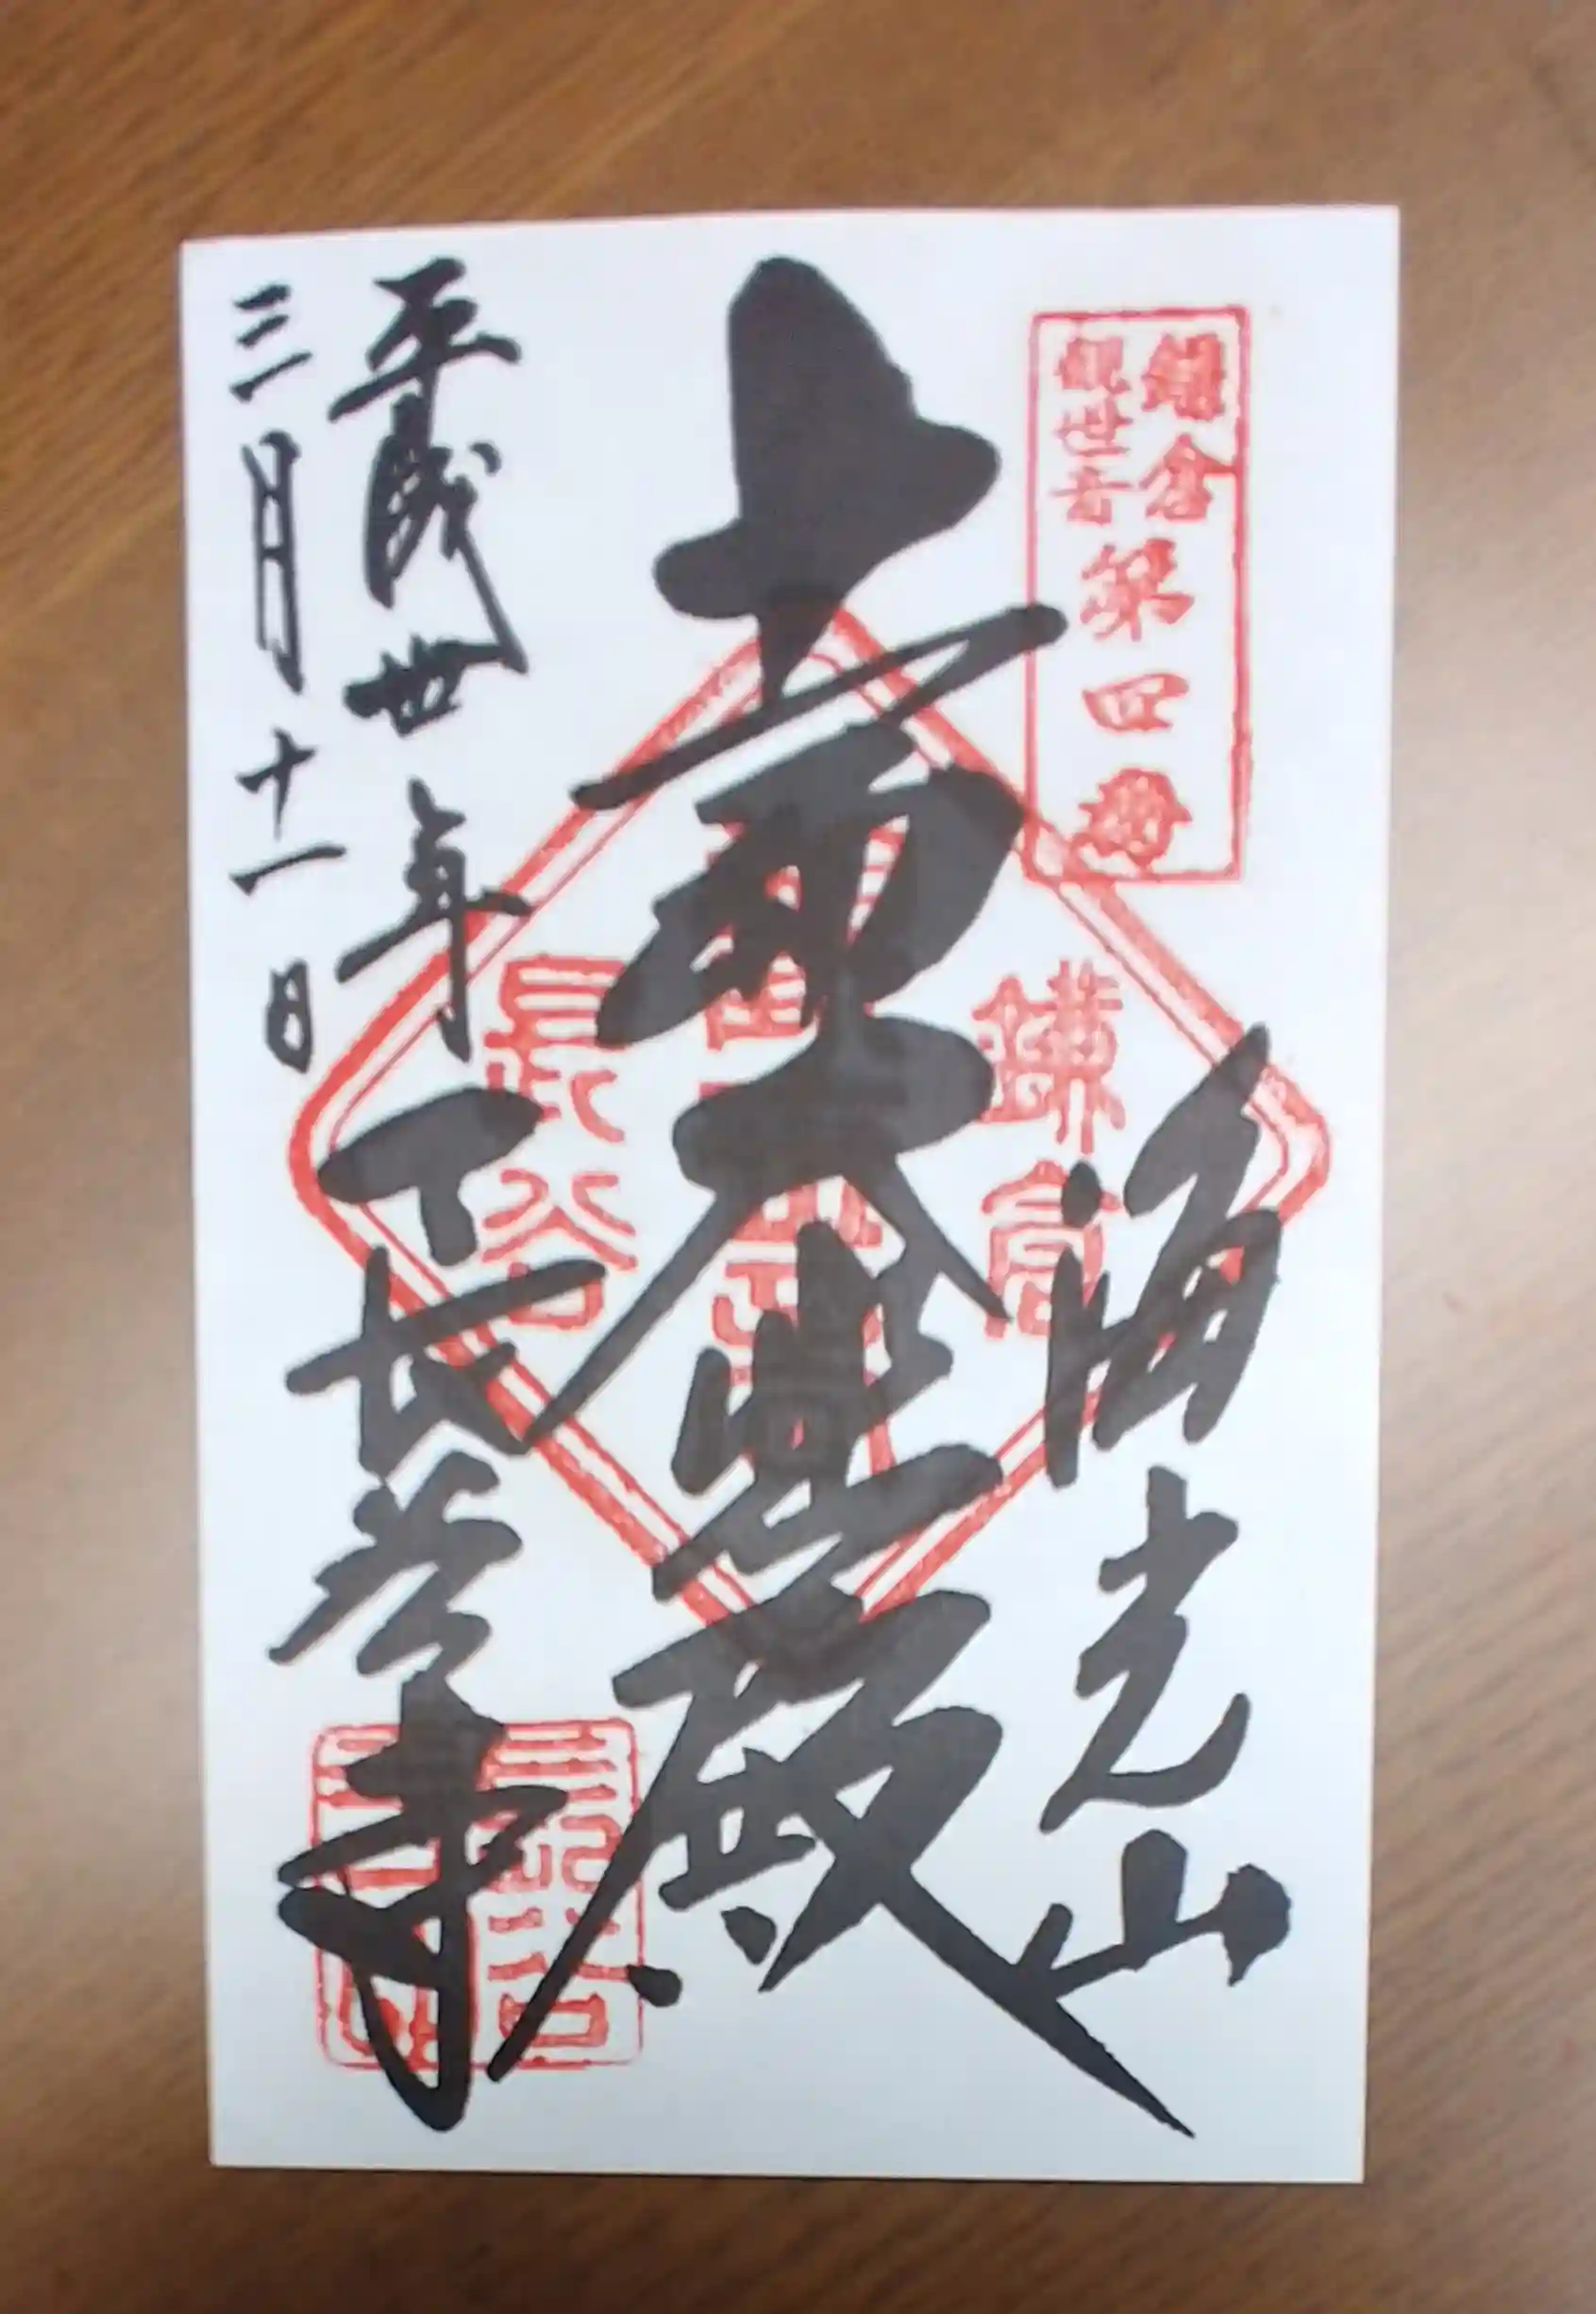 鎌倉
観世音
第四番
海光山
十一面大悲殿
平成丗年
三月十一日
長谷寺
鎌倉
長谷